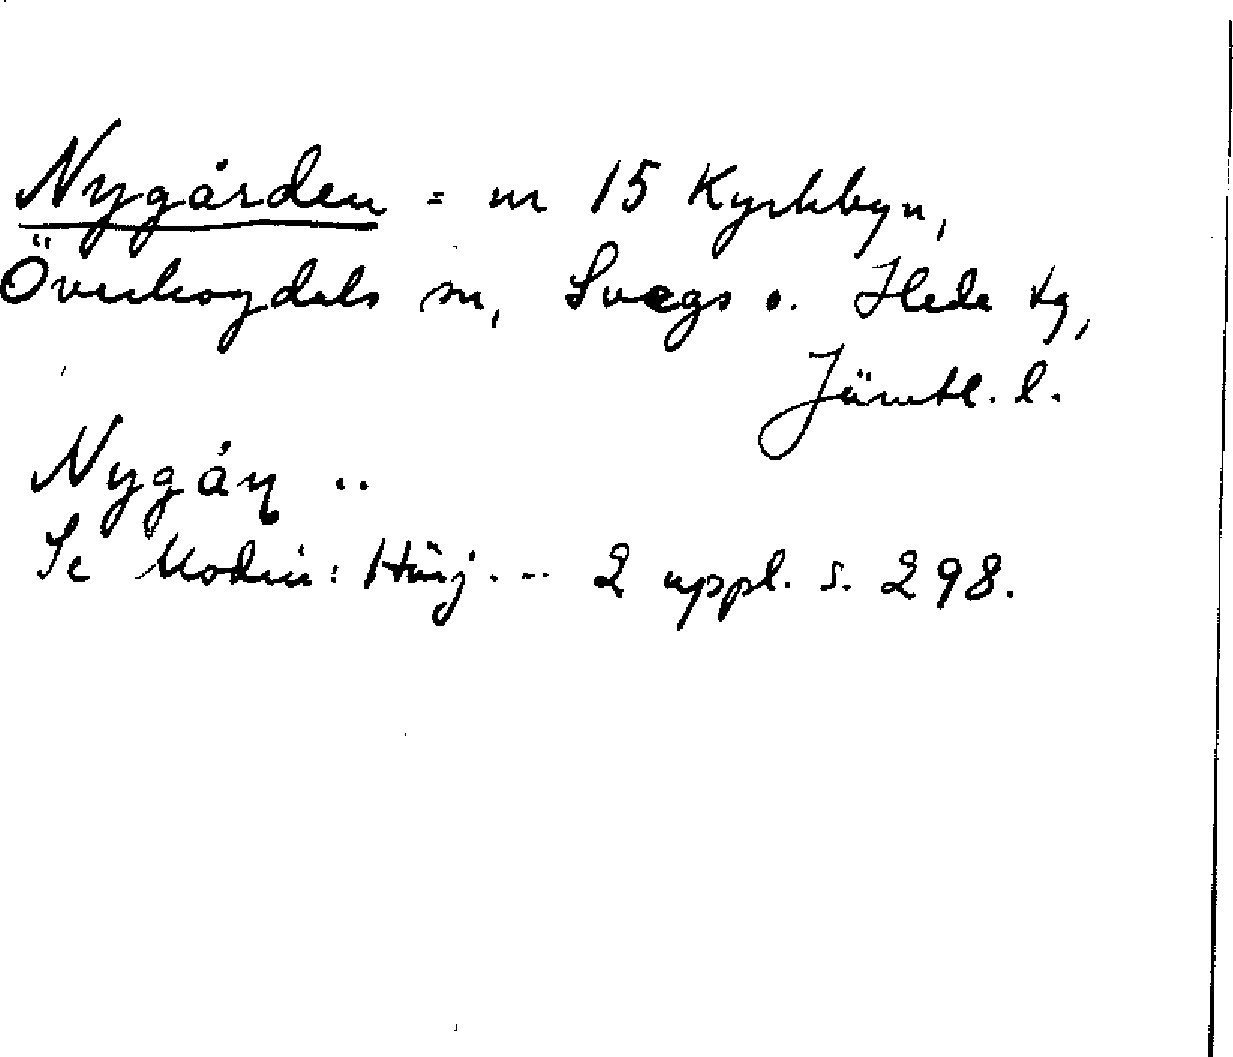 Nygården = nr 15 Kyrkbyn,
Överhogdals sn, Svegs o. Hede tg,
Jämtl. l.
Nygåɳ ..
Se Modin: Härj. ... 2 uppl. s. 298.